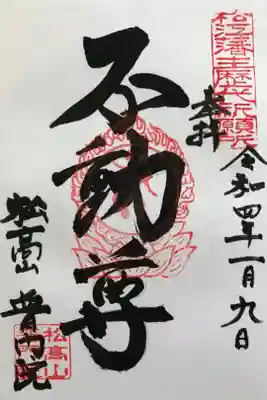 松江藩主歴代祈願所
奉拝
令和四年一月九日
不動尊
松高山 普門院
松高山